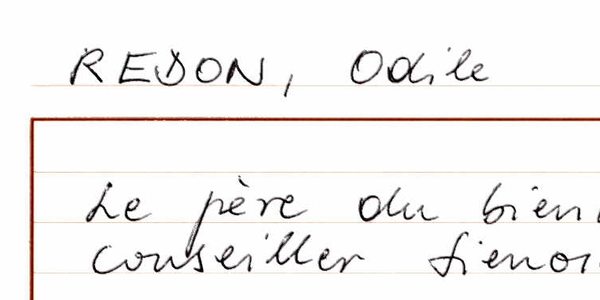 REDON, Odile
Le père du bien
conseiller sieno